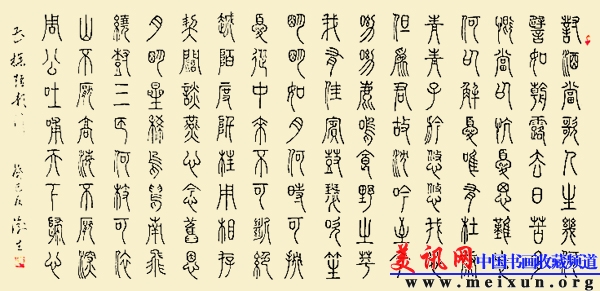 對酒當歌人生幾何
譬如朝露去日苦多
慨當以慷憂思難忘
何以解憂唯有杜康
青青子衿悠悠我心
但為君故沈吟至今
呦呦鹿鳴食野之苹
我有佳賓鼓瑟吹笙
明明如月何時可掇
憂從中來不可斷絕
越陌度阡枉用相存
契闊談讌心念舊恩
月明星稀烏鵲南飛
繞樹三匝何枝可依
山不厭高海不厭深
周公吐哺天下歸心
美讯网
中国书画收藏频道
www.meixun.org